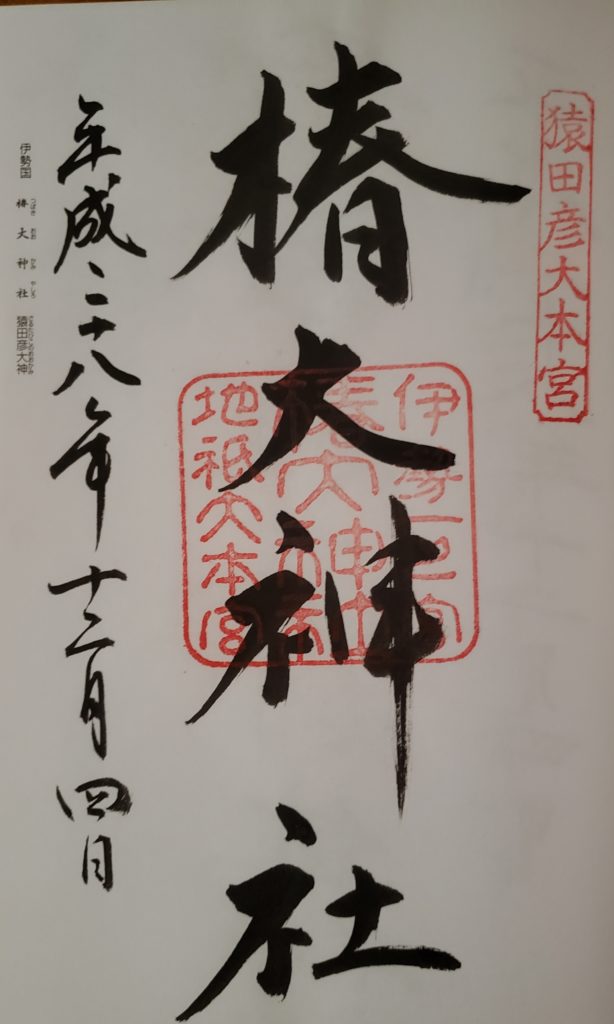 猿田彦大本宮
椿大神社
伊勢一之宮
椿大神社
地祇大本宮
平成二十八年十二月四日
伊勢国 椿大神社 猿田彦大神